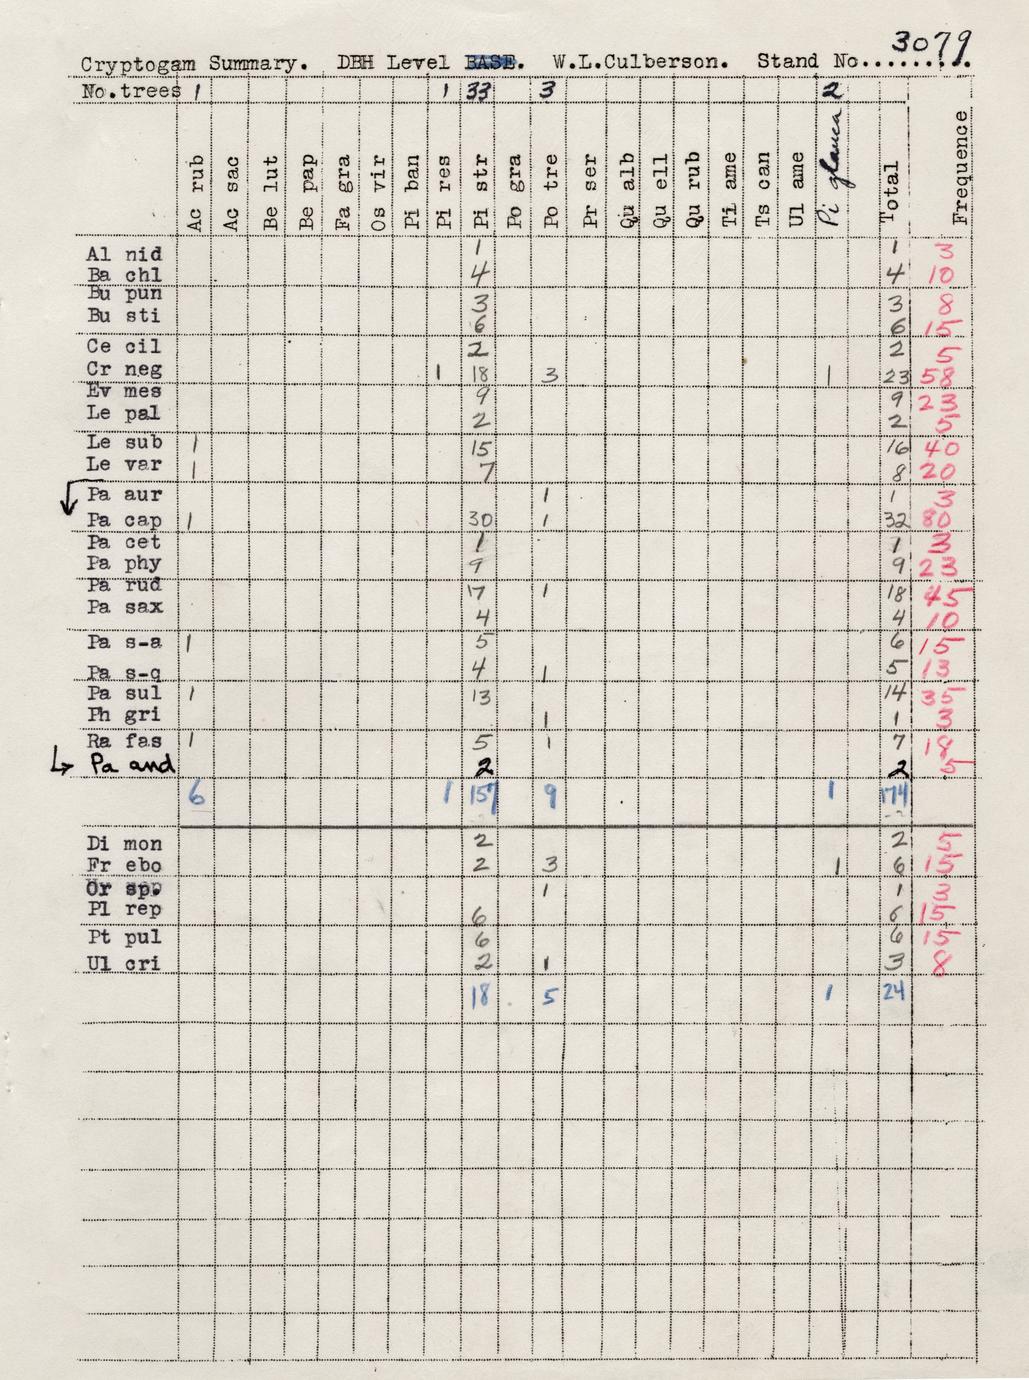 3079
Cryptogam Summary. DBH Level BASE. W.L.Culberson. Stand No........
No.trees 1 1 33 3 2
Ac rub Ac sac Be lut Be pap Fa gra Os vir Pi ban Pi res Pi str Po gra Po tre Pr ser Qu alb Qu ell Qu rub Ti ame Ts can Ul ame Pi glauca Total Frequence
Al nid 1 1 3
Ba chl 4 4 10
Bu pun 3 3 8
Bu sti 6 6 15
Ce cil 2 2 5
Cr neg 1 18 3 1 23 58
Ev mes 9 9 23
Le pal 2 2 5
Le sub 1 15 16 40
Le var 1 7 8 20
Pa aur 1 1 3
Pa cap 1 30 1 32 80
Pa cet 1 1 3
Pa phy 9 9 23
Pa rud 17 1 18 45
Pa sax 4 4 10
Pa s-a 1 5 6 15
Pa s-q 4 1 5 13
Pa sul 1 13 14 35
Ph gri 1 1 3
Ra fas 1 5 1 7 18
Pa and 2 2 5
6 1 157 9 1 174
Di mon 2 2 5
Fr ebo 2 3 1 6 15
Or sp. 1 1 3
Pl rep 6 6 15
Pt pul 6 6 15
Ul cri 2 1 3 8
18 5 1 24